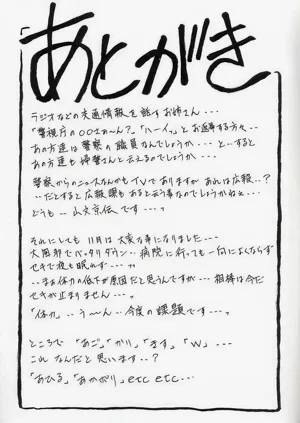 あとがき
ラジオなどの交通情報を話すお姉さん・・・
「警視庁の○○さぁ〜ん?」「ハーイッ」とお返事する方々・・
あの方達は警察の職員なんでしょうか・・・とーすると
あの方達も婦警さんと云えるのでしょうか・・・
警察からのニュースなんかもTVでありますが あれは広報・・?
・・だとすると広報課もあると云う事なのでしょうかねぇ・・・
どうも・・山文京伝です・・・。
それにしても 11月は大変な事になりました・・・
大風邪でバッタリダウン・・病院に行っても一向によくならず
せきで夜も眠れず・・・。
・・まぁ体力の低下が原因だと思うんですが・・・相棒は今だ
せきが止まりません・・・。
「体力」・・う〜ん・・今度の課題です・・・。
ところで 「あご」「かり」「ます」「W」・・・
これ なんだと思います・・?
「あひる」「あかがり」etc etc・・・